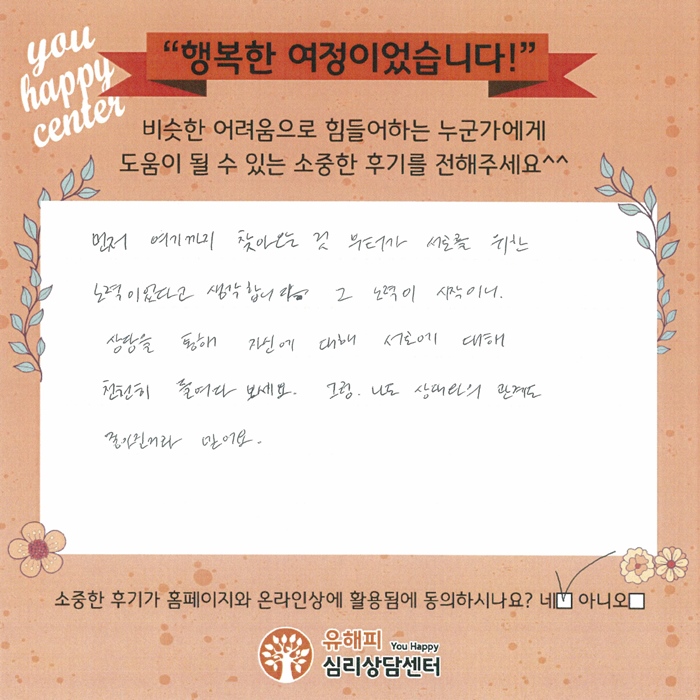 you
happy
center
“행복한 여정이었습니다!”
비슷한 어려움으로 힘들어하는 누군가에게
도움이 될 수 있는 소중한 후기를 전해주세요^^
먼저 여기까지 찾아오는 것 부터가 서로를 위한
노력이었다고 생각합니다. 그 노력이 시작이니.
상담을 통해 자신에 대해 서로에 대해
천천히 들여다 보세요. 그럼. 나도 상대와의 관계도
좋아진거라 믿어요.
소중한 후기가 홈페이지와 온라인상에 활용됨에 동의하시나요? 네 아니오
유해피 You Happy
심리상담센터